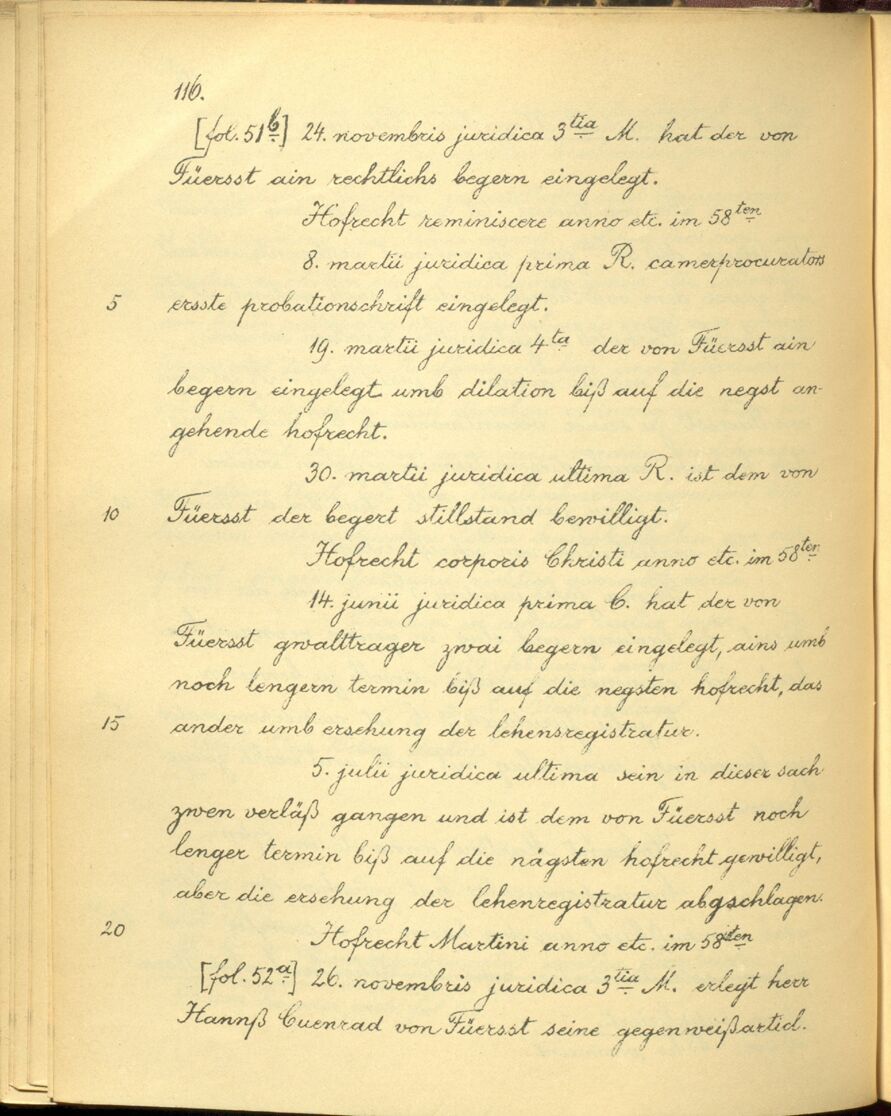 116.
[fol. 51b] 24. novembris juridica 3tia M. hat der von
Füersst ain rechtlichs begern eingelegt.
Hofrecht reminiscere anno etc. im 58ten
8. martii juridica prima R. camerprocurators
5 ersste probationschrift eingelegt.
19. martii juridica 4ta der von Füersst ain
begern eingelegt umb dilation biß auf die negst an-
gehende hofrecht.
30. martii juridica ultima R. ist dem von
10 Füersst der begert stillstand bewilligt.
Hofrecht corporis Christi anno etc. im 58ten
14. junii juridica prima C. hat der von
Füersst gwalttrager zwai begern eingelegt, ains umb
noch lengern termin biß auf die negsten hofrecht, das
15 ander umb ersehung der lehensregistratur.
5. julii juridica ultima sein in dieser sach
zwen verläß gangen und ist dem von Füersst noch
lenger termin biß auf die nägsten hofrecht gewilligt,
aber die ersehung der lehenregistratur abgschlagen.
20 Hofrecht Martini anno etc. im 58ten
[fol. 52a] 26. novembris juridica 3tia M. erlegt herr
Hannß Cuenrad von Füersst seine gegenweißarticl.